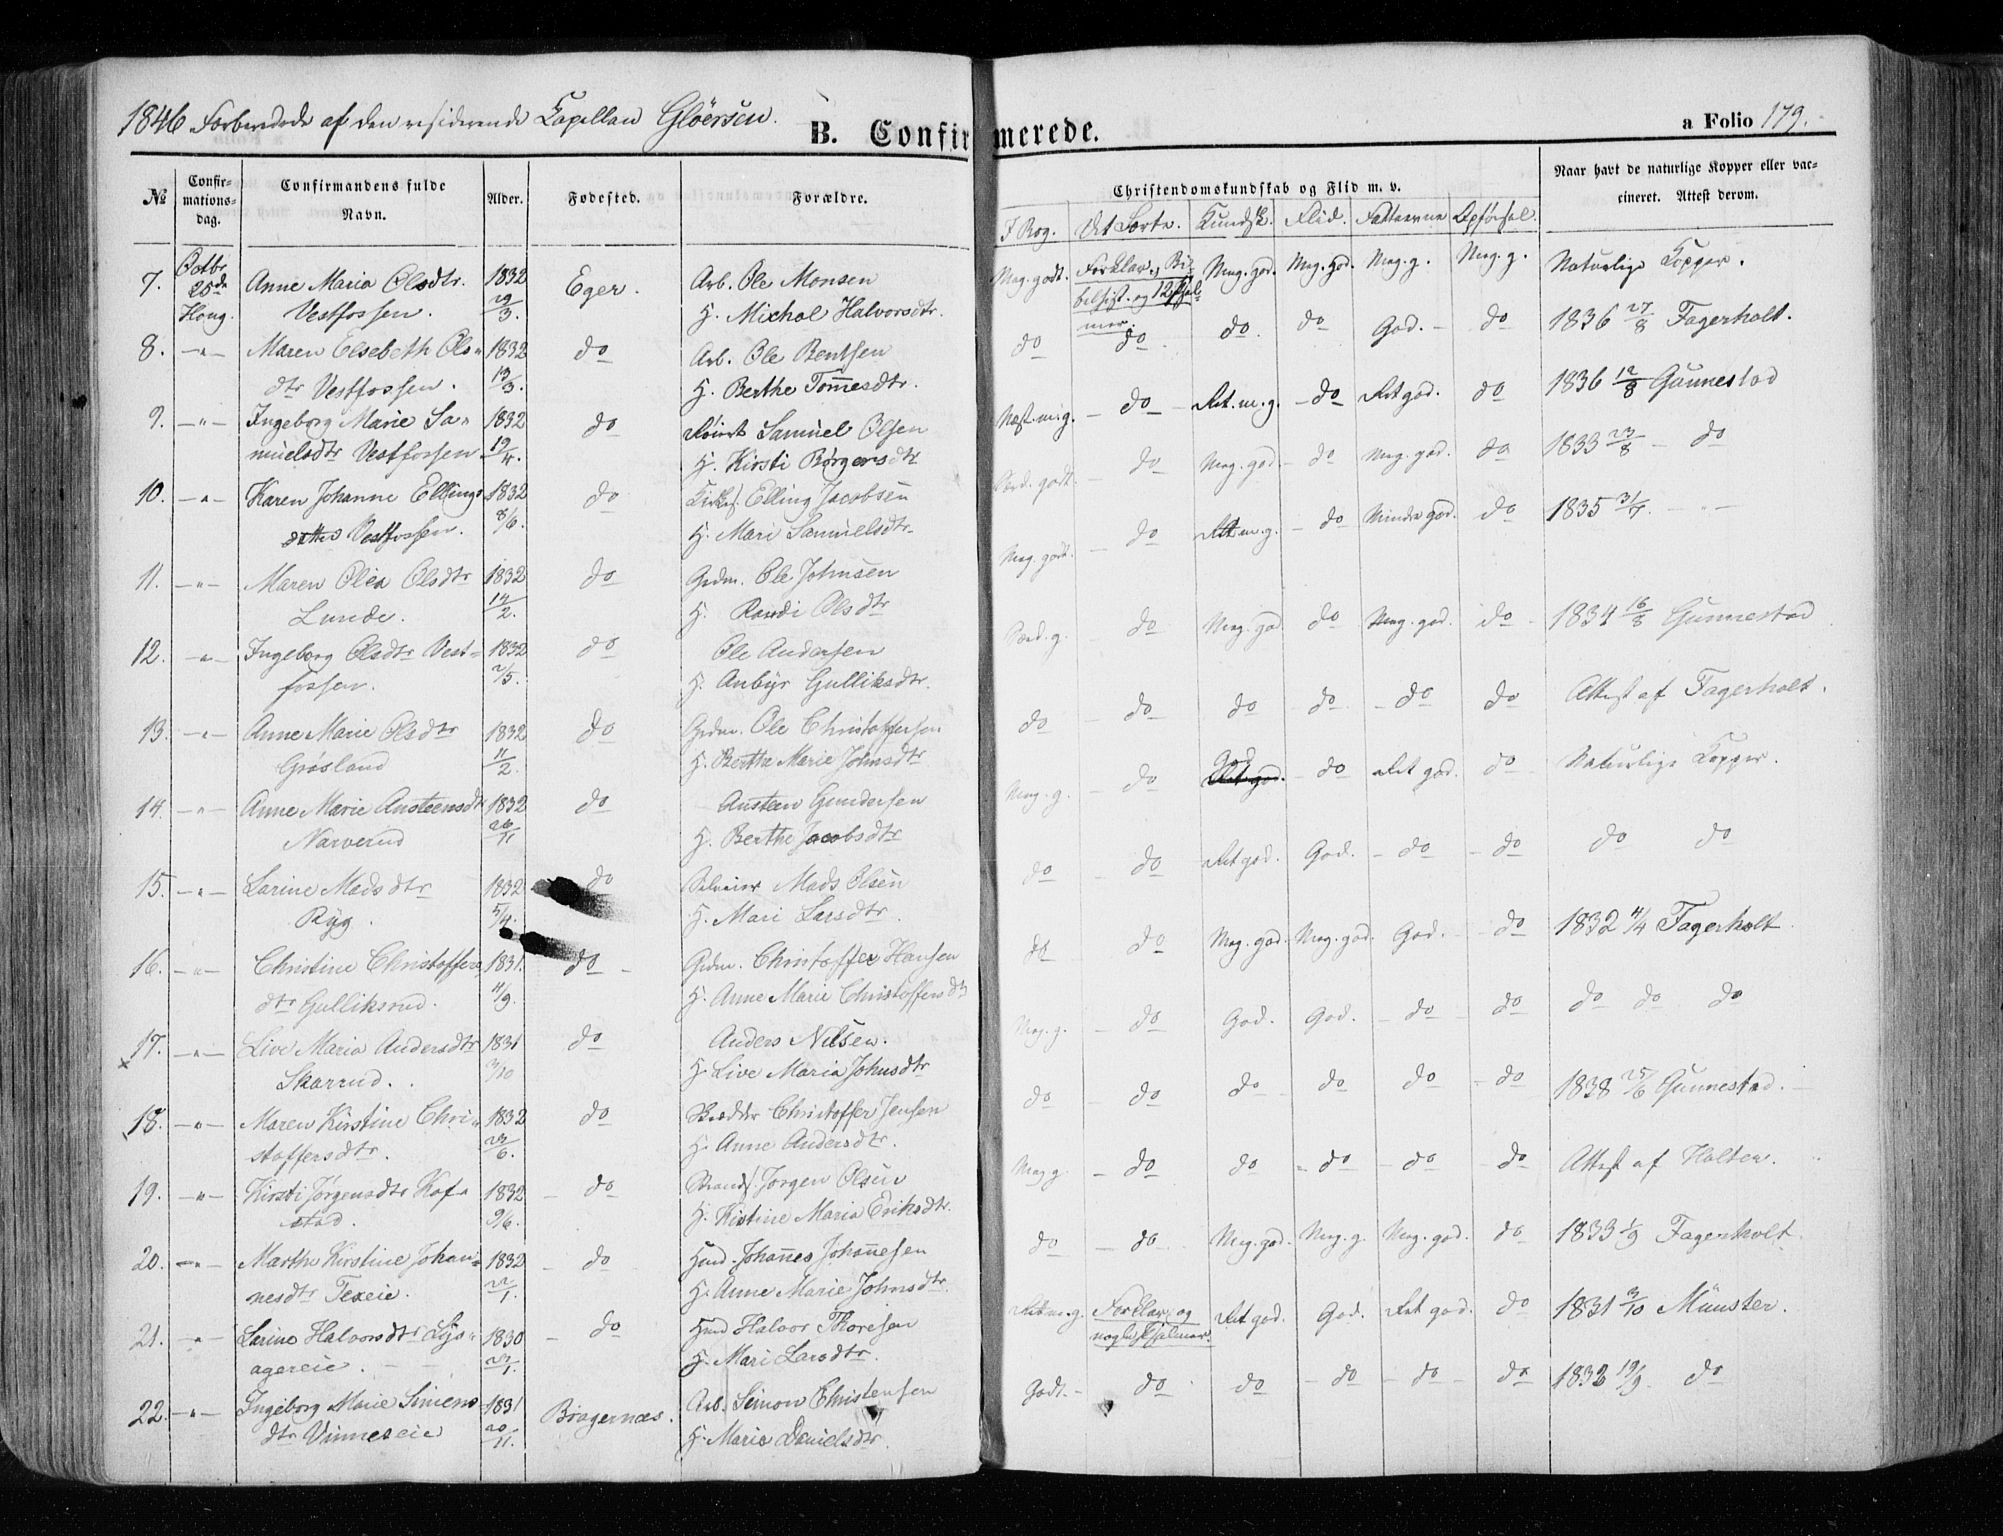 1846 Forberedede af den residerende Capellan Gløersen.
B. Confirmerede.
a Folio 179.
№
Confirmations-dag.
Confirmandens fulde Navn.
Alder.
Fødested.
Forældre.
Christendomskundskab og Flid m. v.
Naar havt de naturlige Kopper eller vaccineret. Attest derom.
I Bog. Det Lærte. Kundsk. Flid. Fatteevne Opførsel.
7. Octbr 25de Houg. Anne Maria Olsdtr. 1832 Eger. Arb. Ole Monsen Meg. godt. Forklar., Bi- Meg. god. Meg. god. Meg. g. Meg. g. Naturlige Kopper.
Vestfossen. 29/3. H. Michal Halvorsdtr. belhist. og 12 Psalmer.
8. -"- Maren Elsebeth Ols- 1832 do Arb. Ole Bentsen do do do do God. do 1836 27/8 Fagerholt.
dtr Vestfossen. 13/3. H. Berthe Tom̅esdtr.
9. -"- Ingeborg Marie Sa- 1832 do Samuel Olsen Næst. m. g. do Ret. m. g. do Ret god. do 1836 12/8 Gunnestad
muelsdtr Vestfossen 19/4. H. Kirsti Børgersdtr
10. -"- Karen Johanne Ellings 1832 do Elling Jacobsen godt. do Meg. god. do Meg. god. do 1833 23/8 do
datter Vestfossen. 8/6. H. Mari Samuelsdtr.
11. -"- Maren Olea Olsdtr 1832 do Grdm. Ole Johnsen Meg. godt. do Ret m. g. do Mindre god. do 1835 31/7 -"-
Lunde. 14/2. H. Randi Olsdtr
12. -"- Ingeborg Olsdtr Vest- 1832 do Ole Andersen g. do Meg. god do Meg. god. do 1834 16/8 Gunnestad
fossen. 2/5. H. Anbjr Gulliksdtr.
13. -"- Anne Marie Olsdtr 1832 do Grdm. Ole Christoffersen do do do do do do Attest af Fagerholt.
Grøsland 11/2. H. Berthe Marie Johnsdtr
14. -"- Anne Marie Austeensdtr 1832 do Austeen Gundersen Meg. g. do God Ret god. do Ret god. do Naturlige Kopper.
Narverud 26/11 H. Berthe Jacobsdtr
15. -"- Larine Madsdtr 1832 do Selveier Mads Olsen do do Ret god. God. do do do do
Ryg. 5/4. H. Mari Larsdtr.
16. -"- Christine Christoffers 1831. do Grdm. Christoffer Hansen do do Meg. god. Meg. god. God. do 1832 4/4 Fagerholt
dtr Gulliksrud. 4/9. H. Anne Marie Christoffersdtr
17. -"- Live Maria Andersdtr 1831 do Anders Nilsen. Meg. g. do God. God. do do do do do
Skarrud. 3/10 H. Live Maria Johnsdtr
18. -"- Maren Kirstine Chri- 1832 do Christoffer Jensen do do do do do do 1838 25/6 Gunnestad.
stoffersdtr. 23/6. H. Anne Andersdtr.
19. -"- Kirsti Jørgensdtr Hof- 1832 do Jørgen Olsen Meg g. do do do do do Attest af Holter.
stad. 9/6. H. Kirstine Maria Eriksdtr.
20. -"- Marthe Kirstine Johan- 1832 do Huusm. Johan̅es Johan̅esen do do Meg. god. Meg. g. Meg. god. do 1833 1/9 Fagerholt
nesdtr Texeie. 22/1. H. Anne Marie Johnsdtr.
21. -"- Larine Halvorsdtr Lys- 1830 do Halvor Thoresen Ret m. g. Forklar. og Ret god. God. Ret god. do 1831 3/10 Münster.
agereie. 23/1. H. Mari Larsdtr. nogle Psalmer.
22. -"- Ingeborg Marie Simens 1831 Bragernæs. Arb. Simon Christensen Godt. do do do do do 1832 19/9. do
dtr Vinneseie 20/11. H. Marie Danielsdtr.